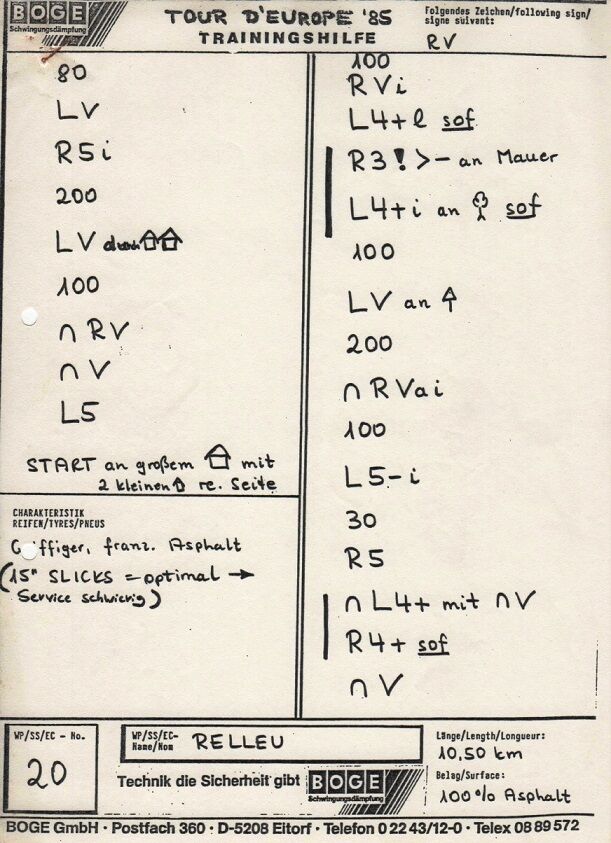 BOGE
Schwingungsdämpfung
TOUR D'EUROPE '85
TRAININGSHILFE
Folgendes Zeichen/following sign/
signe suivant:
RV
80
LV
R5i
200
LV durch
100
∩ RV
∩ V
L5
START an großem mit
2 kleinen re. Seite
100
RVi
L4+l sof
R3! >- an Mauer
L4+i an sof
100
LV an
200
∩ RVai
100
L5-i
30
R5
∩ L4+ mit ∩V
R4+ sof
∩ V
CHARAKTERISTIK
REIFEN/TYRES/PNEUS
Griffiger, franz. Asphalt
(15" SLICKS = optimal →
Service schwierig)
WP/SS/EC - No.
20
WP/SS/EC-
Name/Nom
RELLEU
Technik die Sicherheit gibt
BOGE
Schwingungsdämpfung
Länge/Length/Longueur:
10,50 km
Belag/Surface:
100% Asphalt
BOGE GmbH · Postfach 360 · D-5208 Eitorf · Telefon 0 22 43/12-0 · Telex 08 89 572